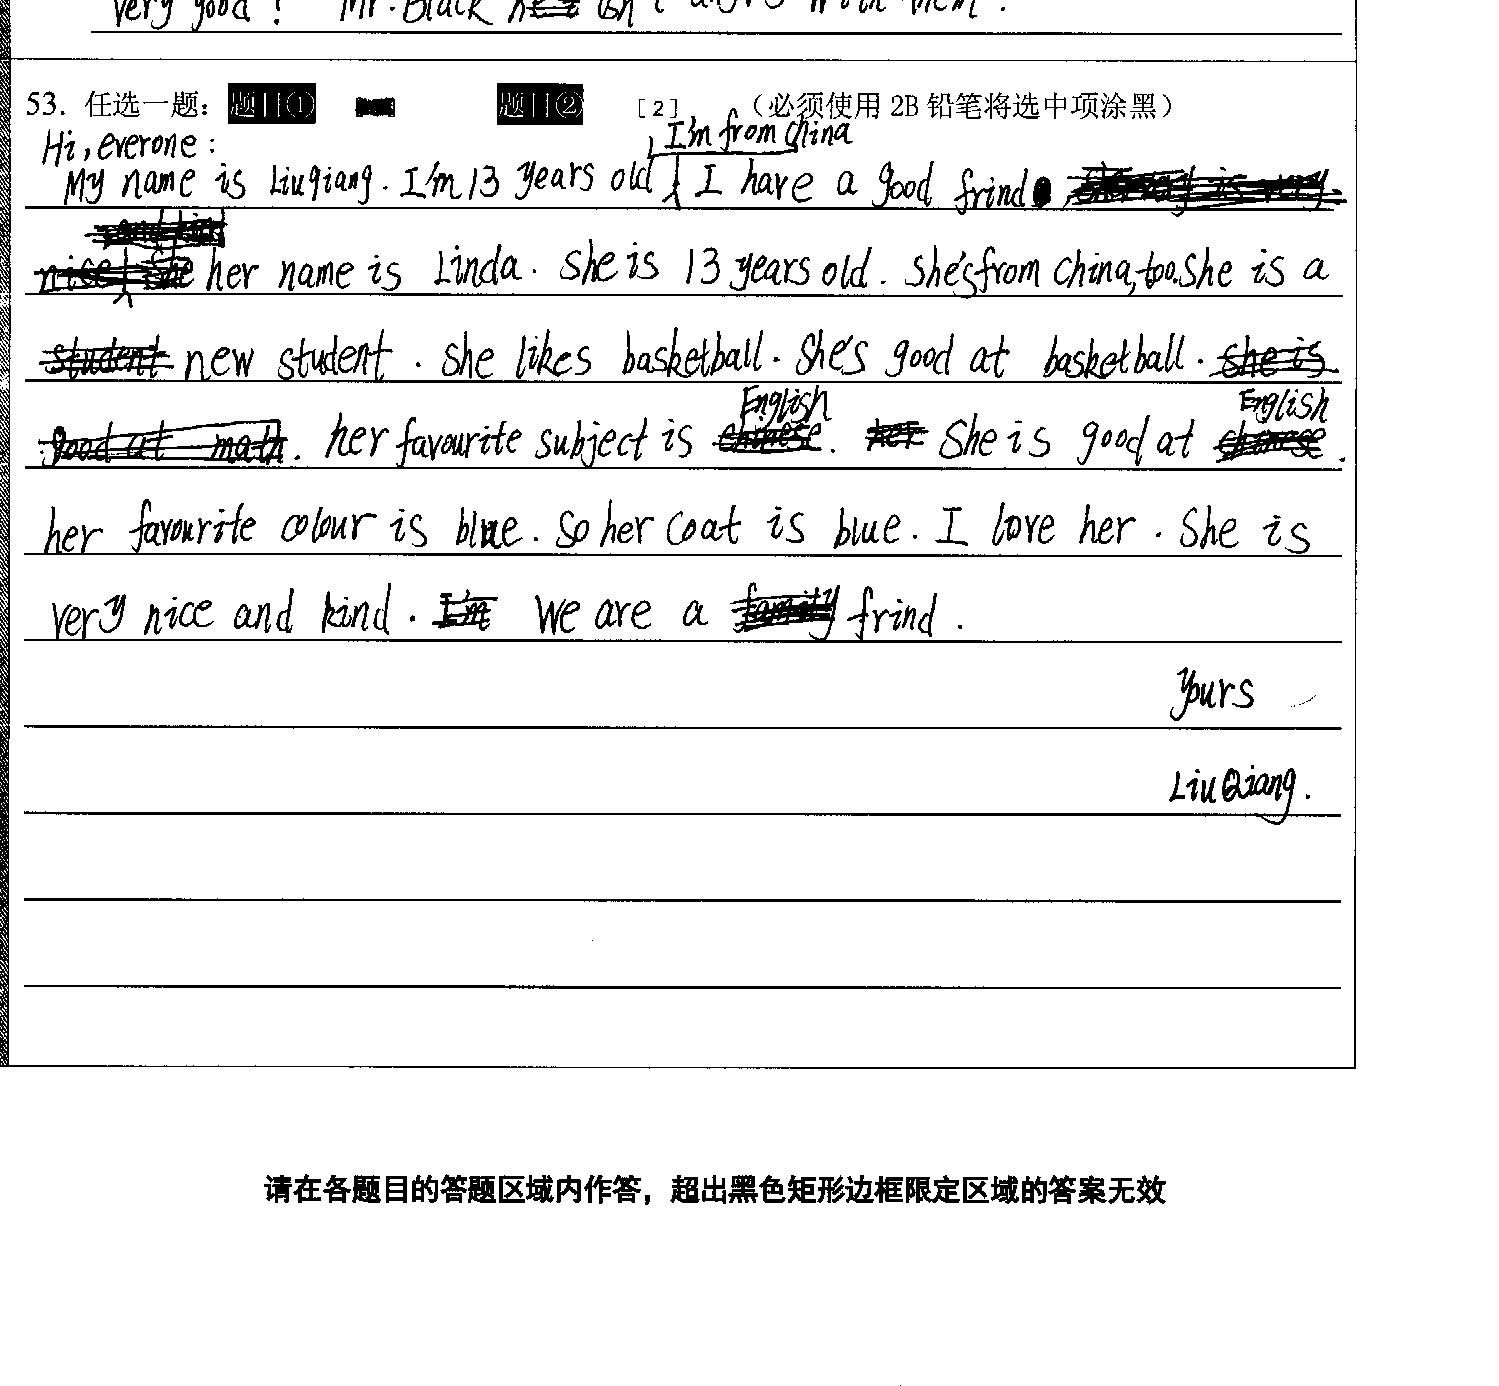 very good! Mr. Black isn't agre with them.
53. 任选一题: 题目① 题目② [2] (必须使用 2B 铅笔将选中项涂黑)
Hi, everone:
, I'm from China
My name is Liuqiang. I'm 13 years old. I have a good frind
her name is Linda. She is 13 years old. She's from China, too. She is a
student new student. She likes basketball. She's good at basketball. she is
English English
good at math. her favourite subject is chinese. her She is good at chinese.
her favourite colour is blue. So her coat is blue. I love her. She is
very nice and kind. I'm We are a family frind.
Yours
Liu Qiang.
请在各题目的答题区域内作答，超出黑色矩形边框限定区域的答案无效